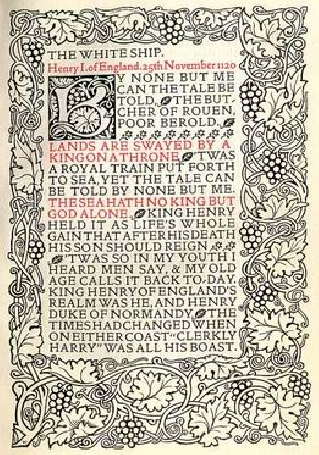 THE WHITE SHIP.
Henry I. of England. 25th November 1120
BY NONE BUT ME
CAN THE TALE BE
TOLD, THE BUT-
CHER OF ROUEN,
POOR BEROLD.
LANDS ARE SWAYED BY A
KING ON A THRONE. 'TWAS
A ROYAL TRAIN PUT FORTH
TO SEA, YET THE TALE CAN
BE TOLD BY NONE BUT ME.
THE SEA HATH NO KING BUT
GOD ALONE. KING HENRY
HELD IT AS LIFE'S WHOLE
GAIN THAT AFTER HIS DEATH
HIS SON SHOULD REIGN
'TWAS SO IN MY YOUTH I
HEARD MEN SAY, & MY OLD
AGE CALLS IT BACK TO-DAY.
KING HENRY OF ENGLAND'S
REALM WAS HE, AND HENRY
DUKE OF NORMANDY. THE
TIMES HAD CHANGED WHEN
ON EITHER COAST "CLERKLY
HARRY" WAS ALL HIS BOAST.